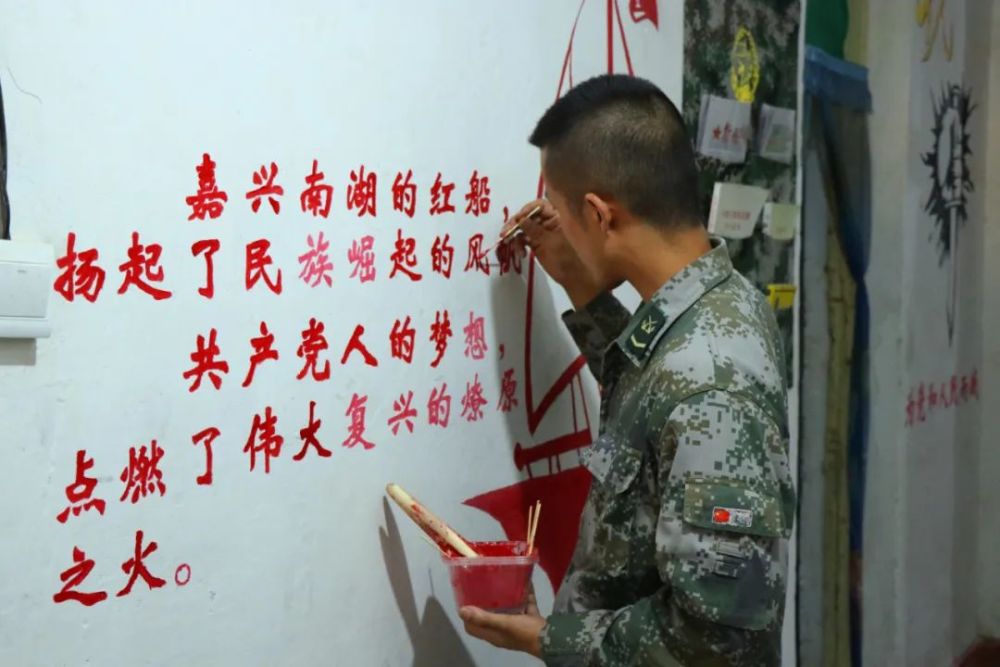 嘉兴南湖的红船，
扬起了民族崛起的风帆
共产党人的梦想，
点燃了伟大复兴的燎原
之火。
为党和人民而战